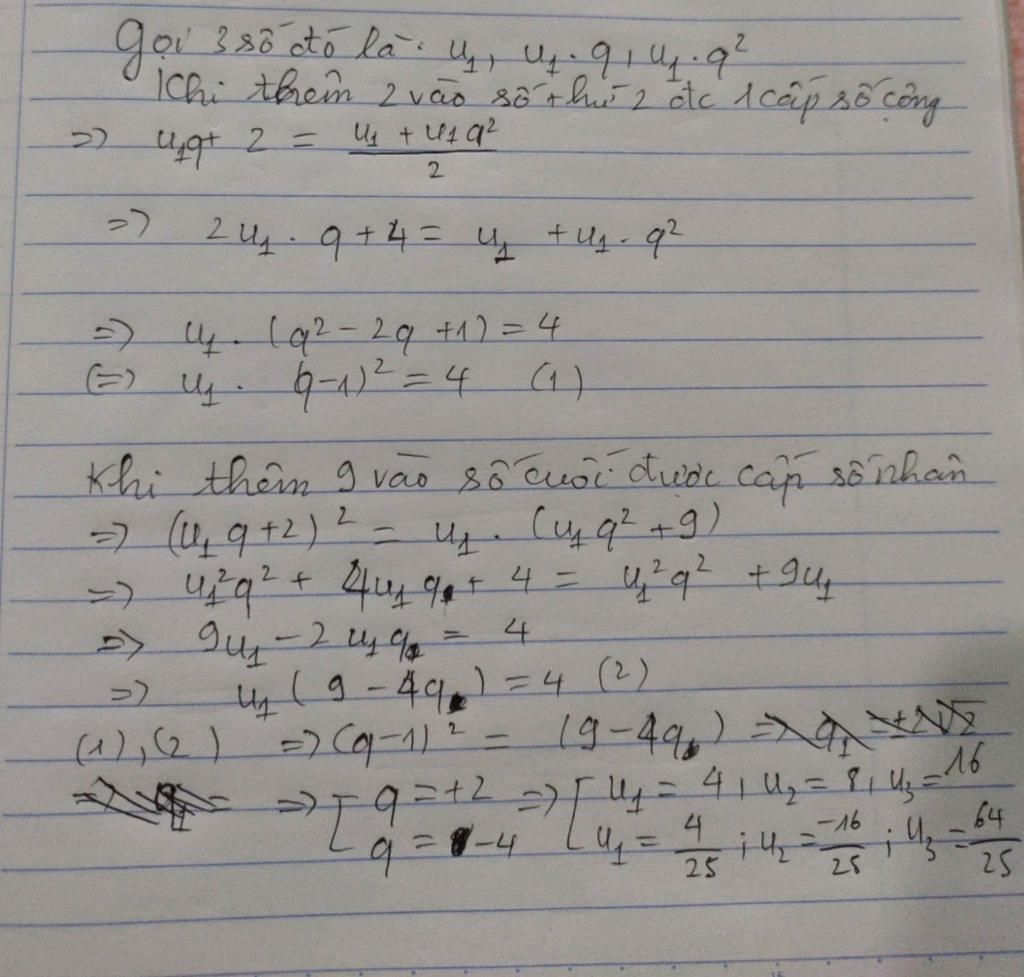 Gọi 3 số đó là: u₁, u₁.q, u₁.q²
Khi thêm 2 vào số thứ 2 đc 1 cấp số cộng
=> u₁q + 2 = (u₁ + u₁q²)/2
=> 2u₁.q + 4 = u₁ + u₁.q²
=> u₁.(q² - 2q + 1) = 4
(=) u₁.(q-1)² = 4 (1)
Khi thêm 9 vào số cuối được cấp số nhân
=> (u₁q + 2)² = u₁.(u₁q² + 9)
=> u₁²q² + 4u₁q + 4 = u₁²q² + 9u₁
=> 9u₁ - 2u₁q = 4
=> u₁(9 - 4q) = 4 (2)
(1), (2) => (q-1)² = (9 - 4q) => q₁ = ±2√2
=> [ q = +2 => [ u₁ = 4, u₂ = 8, u₃ = 16
q = -4 u₁ = 4/25 ; u₂ = -16/25 ; u₃ = 64/25